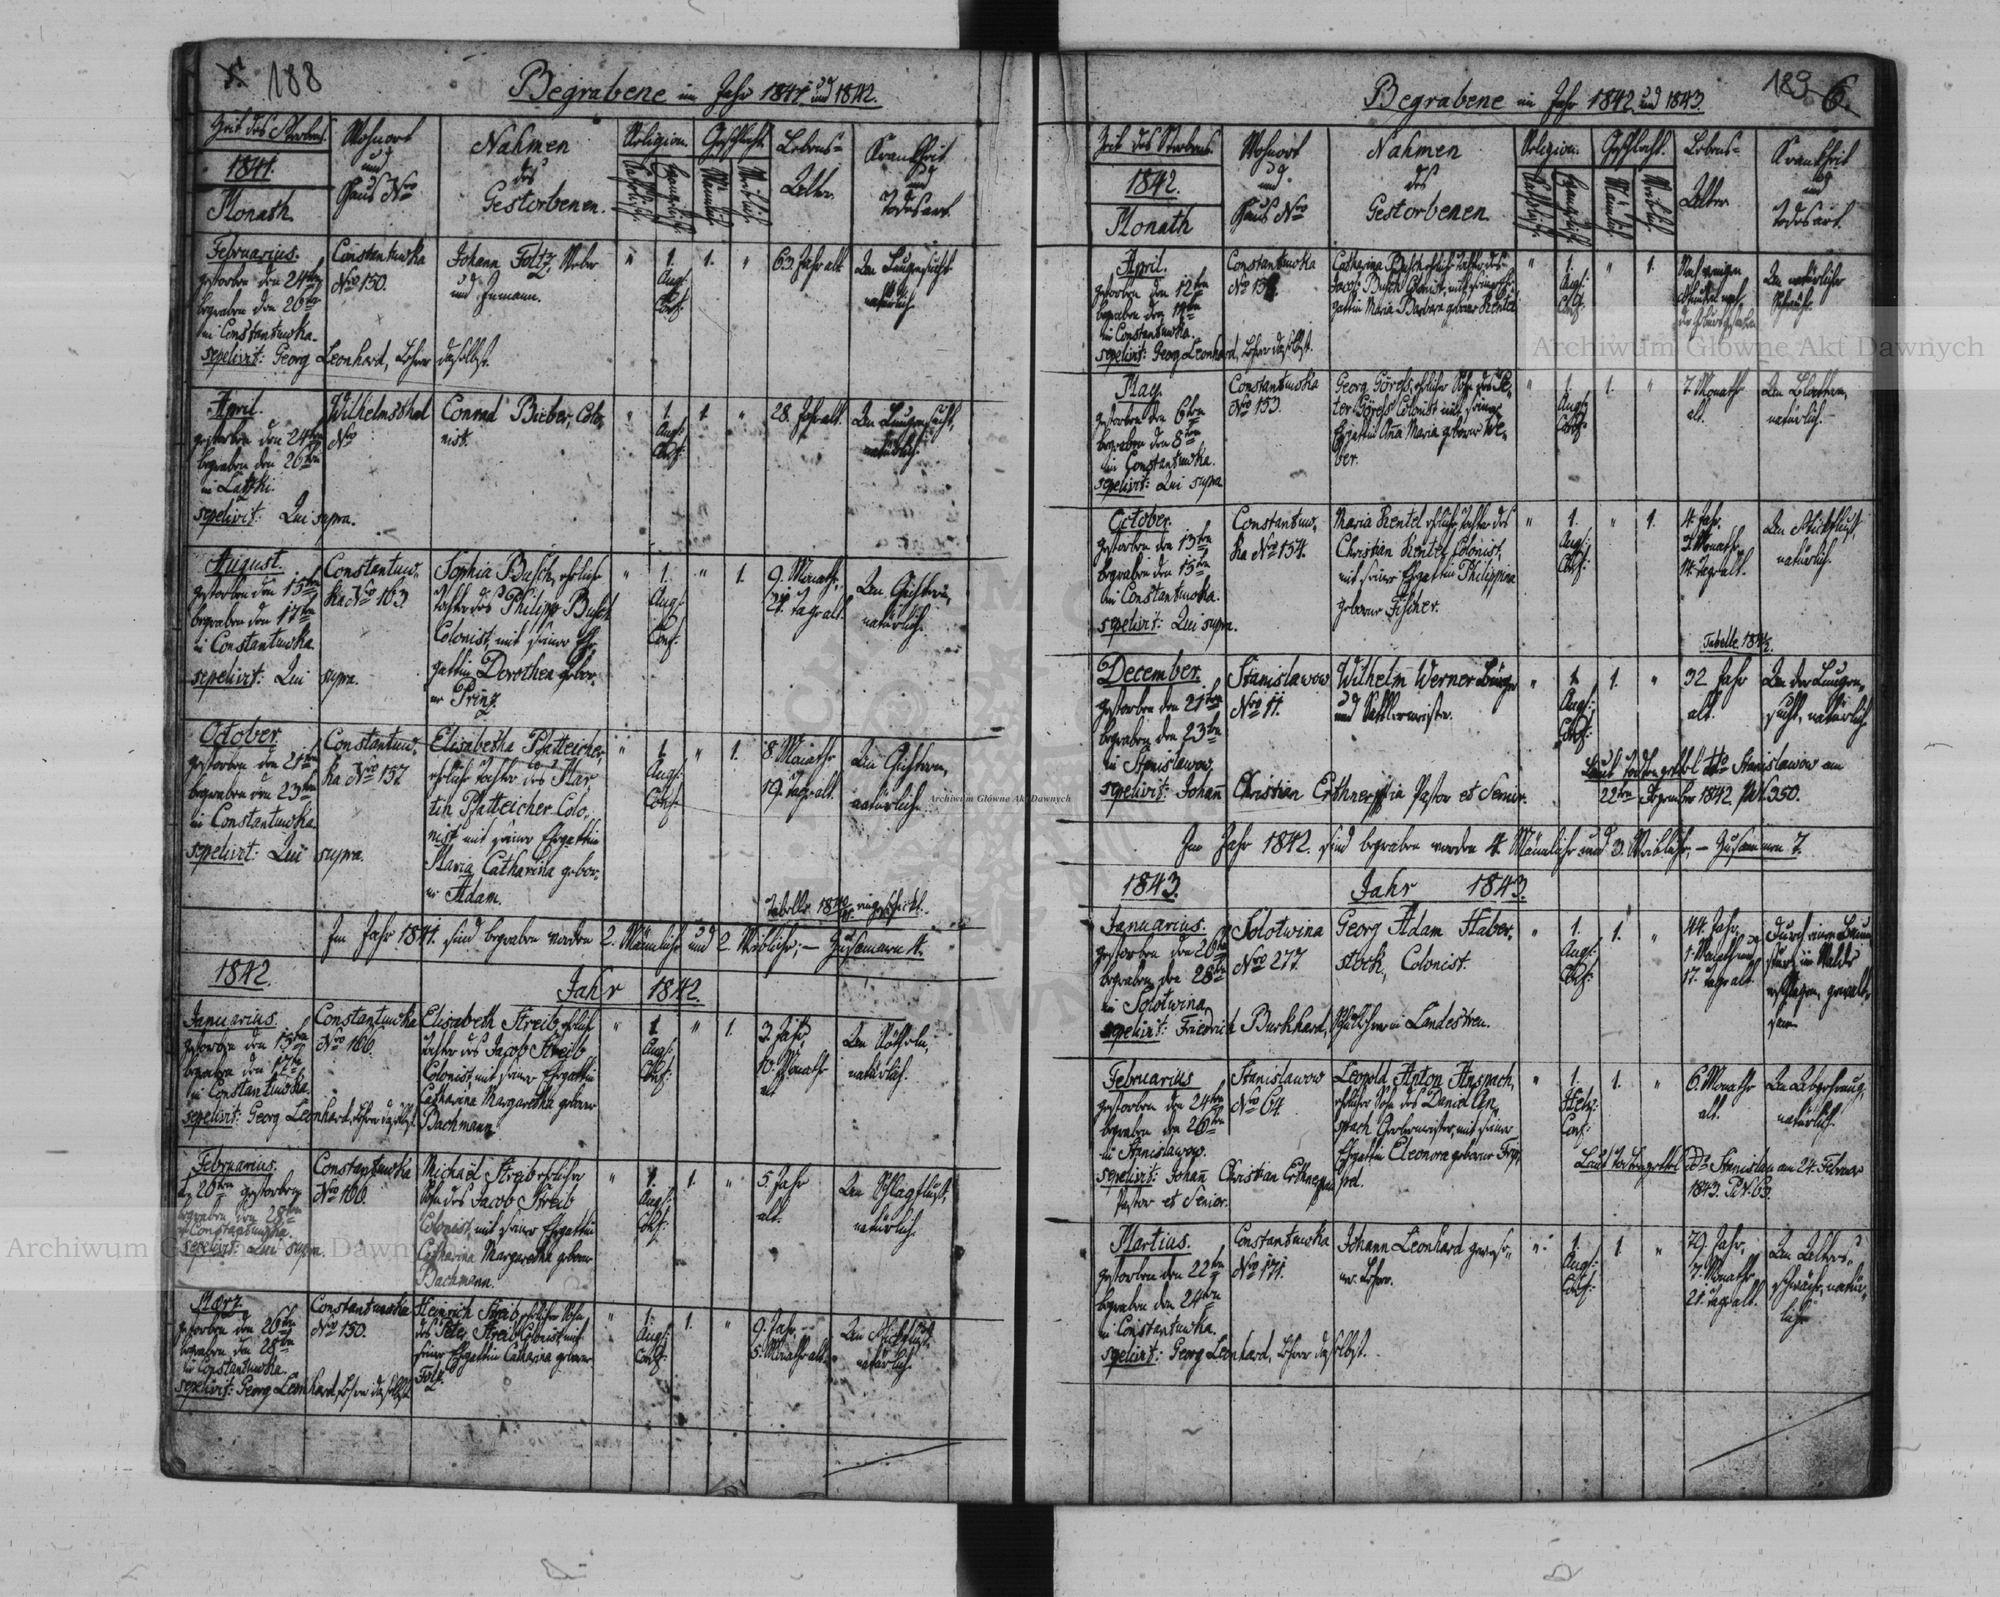 188
Begrabene im Jahr 1841 und 1842.
Zeit des Sterbens.
1841.
Monath
Wohnort
und
Haus Nro
Nahmen
des
Gestorbenen.
Religion.
Katholisch.
Evangelisch.
Geschlecht.
Männlich.
Weiblich.
Lebens-
Alter.
Krankheit
und
Todesart.
Februarius.
gestorben den 24ten
begraben den 26ten
in Constantuwka.
sepelivit: Georg Leonhard, Lehrer daselbst.
Constantuwka
Nro 150.
Johann Foltz, Weber
und Inmann.
" 1. 1. "
Augs:
Conf:
63 Jahr alt
An Lungensucht
natürlich.
April.
gestorben den 24ten
begraben den 26ten
in Latzki.
sepelivit: Qui supra.
Wilhelmsthal
Nro
Conrad Bieber, Colo-
nist.
" 1. 1. "
Augs:
Conf:
28. Jahr alt.
An Lungensucht,
natürlich.
August.
gestorben den 15ten
begraben den 17ten
in Constantuwka.
sepelivit: Qui supra.
Constantuw-
ka Nro 163.
Sophia Busch, ehliche
Tochter des Philipp Busch
Colonist, mit seiner Ehe-
gattin Dorothea gebor-
ne Prinz.
" 1. " 1.
Augs:
Conf:
9. Monathe,
21. Tage alt.
An Gichtern,
natürlich.
October.
gestorben den 21ten
begraben den 23ten
in Constantuwka.
sepelivit: Qui supra.
Constantuw-
ka Nro 157.
Elisabetha Pfatteicher,
ehliche Tochter des Mar-
tin Pfatteicher Colo-
nist mit seiner Ehegattin
Maria Catharina gebor-
ne Adam.
" 1. " 1.
Augs:
Conf:
8. Monathe
19. Tage alt.
An Gichtern,
natürlich.
Im Jahr 1841. sind begraben worden 2. Männliche und 2. Weibliche; — Zusammen 4.
1842.
Jahr 1842.
Januarius.
gestorben den 15ten
begraben den 17ten
in Constantuwka
sepelivit: Georg Leonhard, Lehrer daselbst.
Constantuwka
Nro 166.
Elisabeth Streib ehliche
Tochter des Jacob Streib
Colonist, mit seiner Ehegattin
Catharina Margaretha geborne
Bachmann
" 1. " 1.
Augs:
Conf:
3. Jahr,
10. Monathe
alt
An Rötheln,
natürlich.
Februarius.
d. 26ten gestorben
begraben den 28ten
in Constantuwka.
sepelivit: Qui supra.
Constantuwka
Nro 166.
Michael Streib ehlicher
Sohn des Jacob Streib
Colonist, mit seiner Ehegattin
Catharina Margaretha geborne
Bachmann.
" 1. 1. "
Augs:
Conf:
5. Jahr
alt.
An Schlagfluß,
natürlich.
März
gestorben den 26ten
begraben den 28ten
in Constantuwka.
sepelivit: Georg Leonhard, Lehrer daselbst
Constantuwka
Nro 150.
Heinrich Streib ehlicher Sohn
des Peter Streib Colonist mit
seiner Ehegattin Catharina geborne
Foltz
" 1. 1. "
Augs:
Conf:
9. Jahr,
5. Monathe alt.
An Stickfluß,
natürlich.
189 6.
Begrabene im Jahr 1842 und 1843.
Zeit des Sterbens
1842.
Monath
Wohnort
und
Haus Nro
Nahmen
des
Gestorbenen.
Religion.
Katholisch.
Evangelisch.
Geschlecht.
Männlich.
Weiblich.
Lebens-
Alter
Krankheit
und
Todesart.
April.
gestorben den 12ten
begraben den 14ten
in Constantuwka.
sepelivit: Georg Leonhard, Lehrer daselbst.
Constantuwka
Catharina Busch ehliche Tochter des
Jacob Busch Colonist, mit seiner Ehe-
gattin Maria Barbara geborne Rentel
" 1. " 1.
Augs:
Conf:
Nach wenigen
Stunden nach
der Geburt gestorben
An natürlicher
Schwäche.
May.
gestorben den 6ten
begraben den 8ten
in Constantuwka.
sepelivit: Qui supra
Constantuwka
Nro 153.
Georg Göres, ehlicher Sohn des Pe-
ter Göres Colonist mit seiner
Ehegattin Anna Maria geborne We-
ber.
" 1. 1. "
Augs:
Conf:
7. Monathe
alt.
An Blattern,
natürlich.
October.
gestorben den 13ten
begraben den 15ten
in Constantuwka.
sepelivit: Qui supra.
Constantuw-
ka Nro 154.
Maria Rentel ehliche Tochter des
Christian Rentel, Colonist,
mit seiner Ehegattin Philippina
geborne Fischer.
" 1. " 1.
Augs:
Conf:
4. Jahr,
14. Tage alt.
An Stickfluß,
natürlich.
December.
gestorben den 21ten
begraben den 23ten
in Stanislawow.
sepelivit: Johann Christian Erthner Pastor et Senior.
Stanislawow
Nro 11.
Wilhelm Werner Bürger
und Sattlermeister.
" 1. 1. "
Augs:
Conf:
32 Jahr
alt.
An der Lungen-
sucht, natürlich
Laut Todtenzettel dto Stanislawow am
22ten Dezember 1842. Nr. 350.
Im Jahr 1842. sind begraben worden 4. Männliche und 3. Weibliche, — Zusammen 7.
1843.
Jahr 1843.
Januarius.
gestorben den 26ten
begraben den 28ten
in Solotwina
sepelivit: Friedrich Burkhard, Schullehrer in Landestreu.
Solotwina
Nro 277.
Georg Adam Haber-
stock, Colonist.
" 1. 1. "
Augs:
Conf:
44. Jahr,
1. Monath und
17. Tage alt.
durch einen Baum
erschlagen, gewalt-
sam
Februarius
gestorben den 24ten
begraben den 26ten
in Stanislawow.
sepelivit: Johann Christian Erthner
Pastor et Senior.
Stanislawow
Nro 64
Leopold Anton Anspach,
ehlicher Sohn des Daniel An-
spach Gerbermeister, mit seiner
Ehegattin Eleonora geborne Trip-
pel.
" 1. 1. "
Helv:
Conf:
6. Monathe
alt.
natürlich.
Laut Todtenzettel dto Stanislau am 24. Februar
1843. Nr. 63.
Martius.
gestorben den 22ten
begraben den 24ten
in Constantuwka.
sepelivit: Georg Leonhard, Lehrer daselbst.
Constantuwka
Nro 171.
Johann Leonhard gewese-
ner Lehrer.
" 1. 1. "
Augs:
Conf:
79. Jahr,
7. Monathe
21. Tage alt.
An Alters-
schwäche, natür-
lich
Archiwum Główne Akt Dawnych
Archiwum Główne Akt Dawnych
Archiwum Główne Akt Dawnych